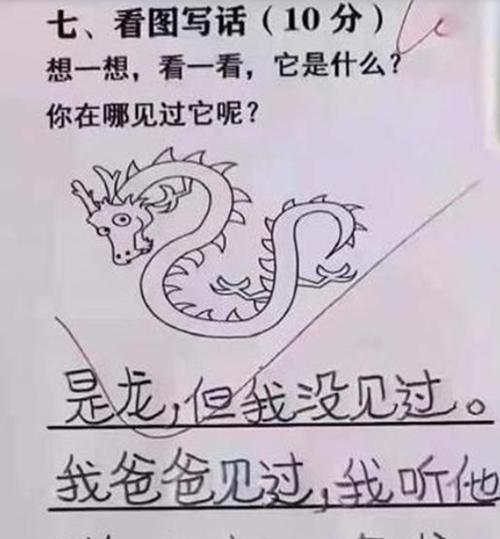 七、看图写话（10分）
想一想，看一看，它是什么？
你在哪见过它呢？
是龙，但我没见过。
我爸爸见过，我听他